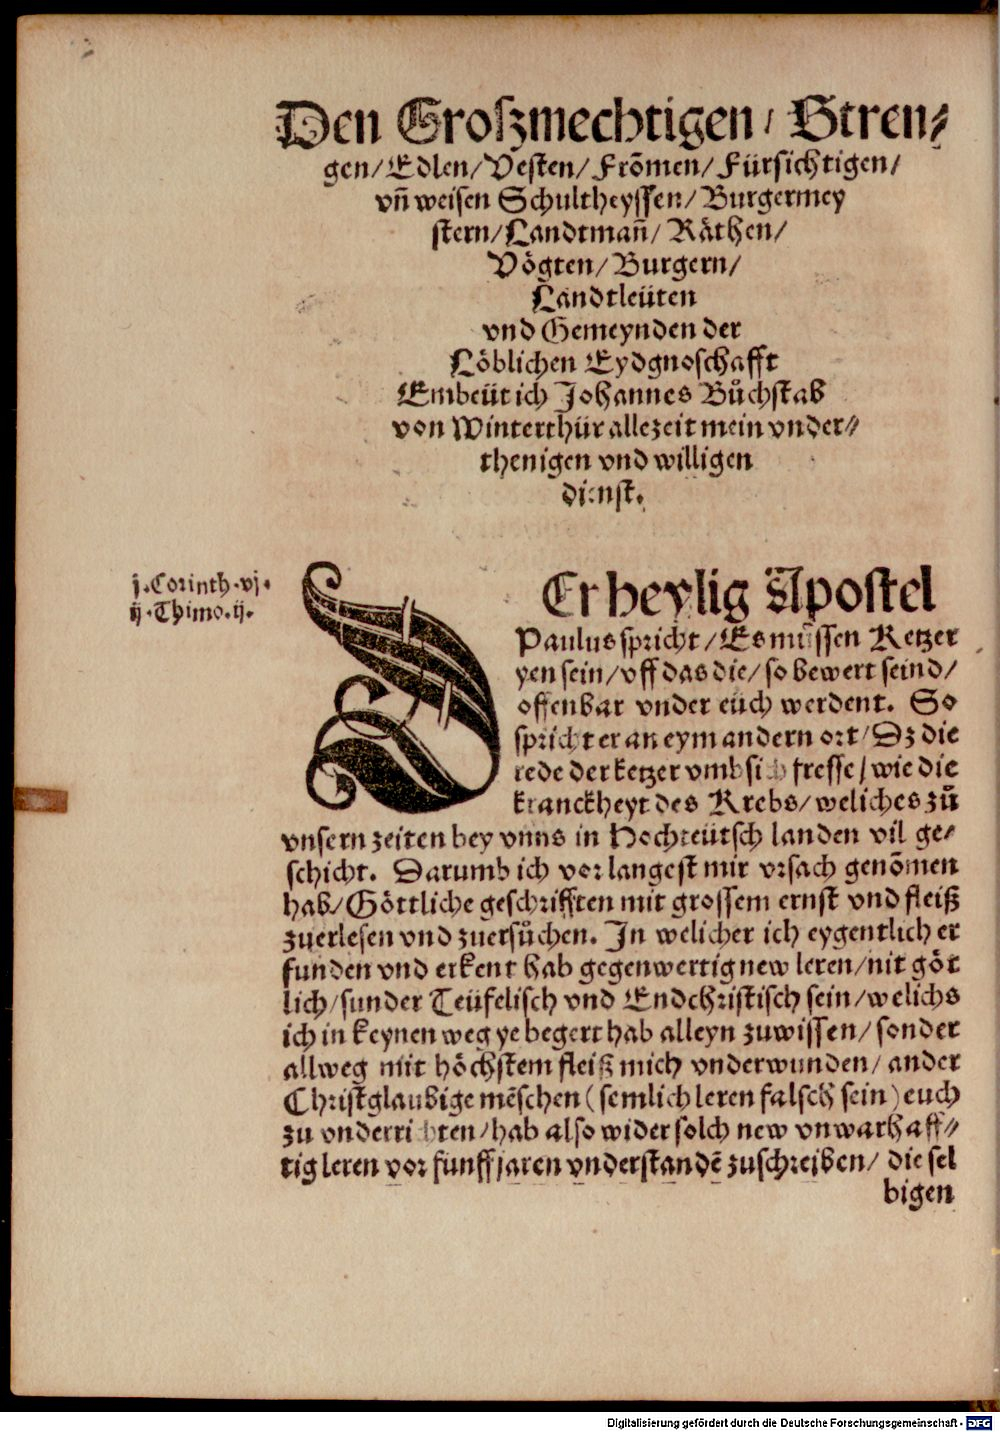 Den Großmechtigen/ Stren⸗
gen/ Edlen/ Vesten/ Frõmen/ Fürsichtigen/
vñ weisen Schultheyssen/ Burgermey
stern/ Landtmañ/ Räthen/
Vögten/ Burgern/
Landtleüten
vnd Gemeynden der
Löblichen Eydgnoschafft
Embeüt ich Johannes Bůchstab
von Winterthür allezeit mein vnder⸗
thenigen vnd willigen
dienst.
j. Corinth. vj.
ij. Thimo. ij.
DEr heylig Apostel
Paulus spricht/ Es müssen Ketzer
yen sein/ vff das die/ so bewert seind/
offenbar vnder eüch werdent. So
spricht er an eym andern ort/ Dz die
rede der ketzer vmb sich fresse/ wie die
kranckheyt des Krebs/ weliches zů
vnsern zeiten bey vnns in Hochteütsch landen vil ge⸗
schicht. Darumb ich vor langest mir vrsach genõmen
hab/ Göttliche geschrifften mit grossem ernst vnd fleiß
zuerlesen vnd zuersůchen. In welicher ich eygentlich er
funden vnd erkent hab gegenwertig new leren/ nit göt
lich/ sunder Teüfelisch vnd Endchristisch sein/ welichs
ich in keynen weg ye begert hab alleyn zuwissen/ sonder
allweg mit höchstem fleiß mich vnderwunden/ ander
Christglaubige mẽschen (semlich leren falsch sein) euch
zu vnderrichten/ hab also wider solch new vnwarhaff⸗
tig leren vor funff jaren vnderstandẽ zuschreiben/ die sel
bigen
Digitalisierung gefördert durch die Deutsche Forschungsgemeinschaft - DFG